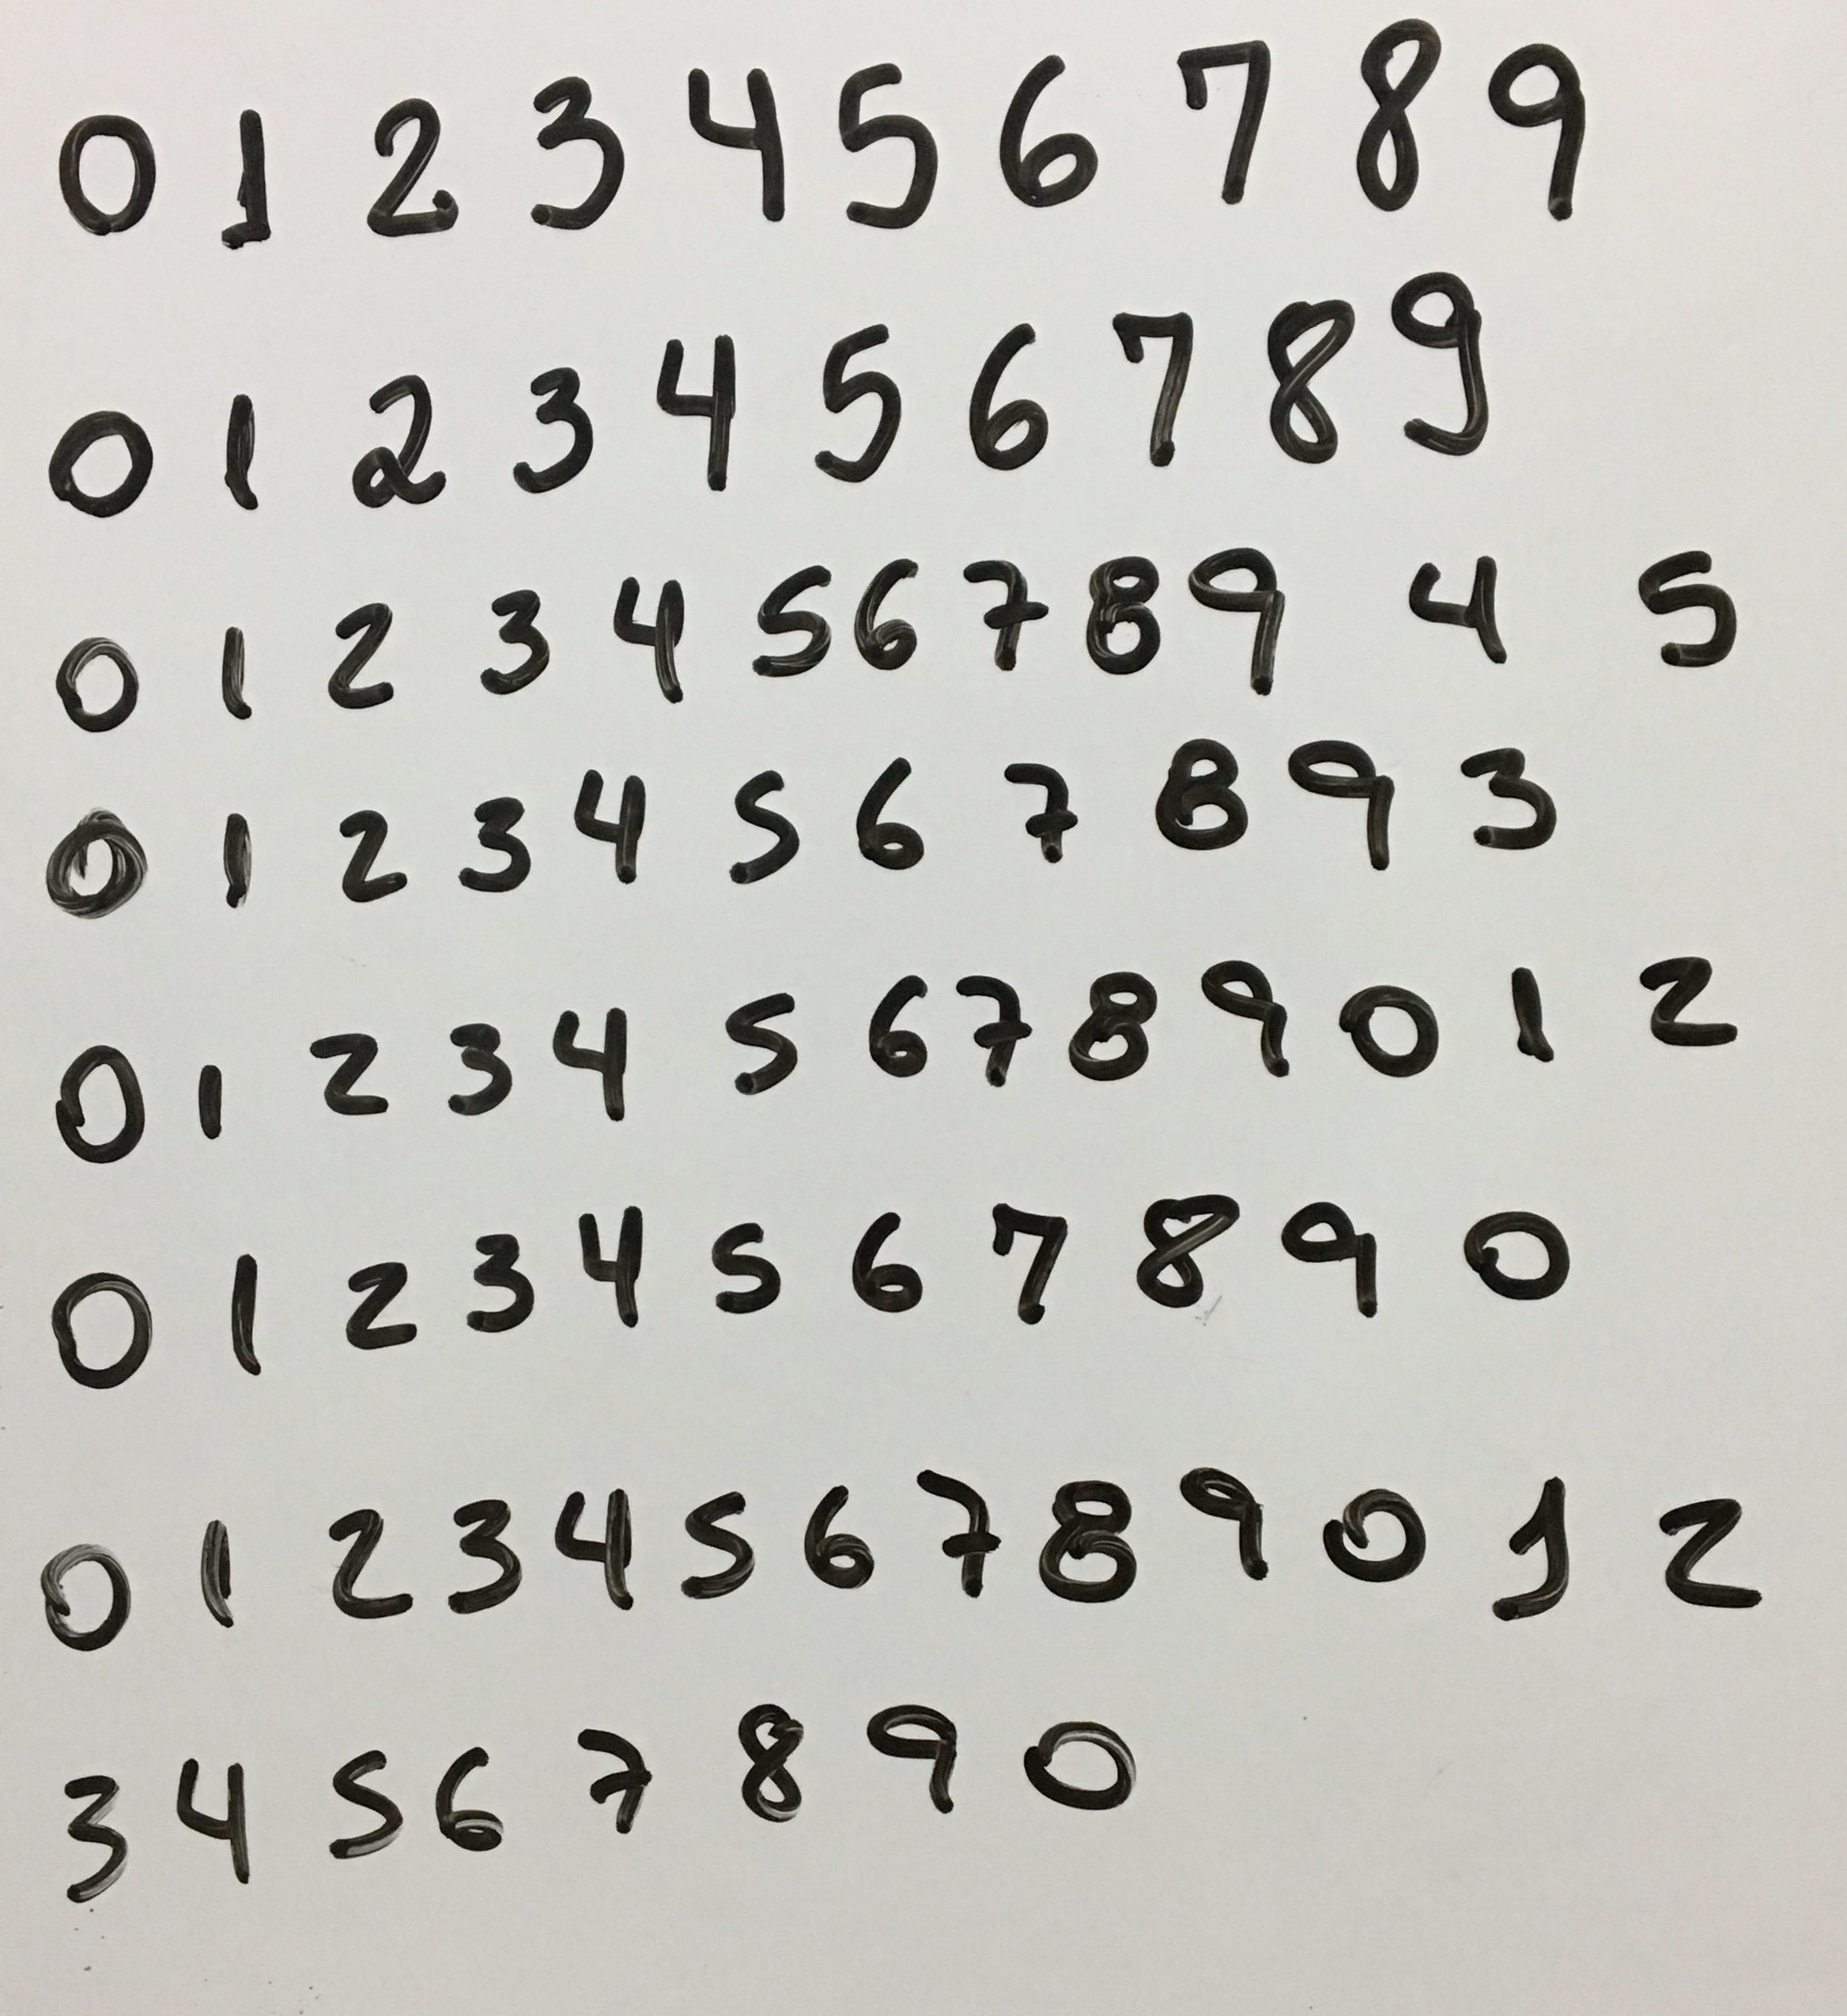 0 1 2 3 4 5 6 7 8 9
0 1 2 3 4 5 6 7 8 9
0 1 2 3 4 5 6 7 8 9 4 5
0 1 2 3 4 5 6 7 8 9 3
0 1 2 3 4 5 6 7 8 9 0 1 2
0 1 2 3 4 5 6 7 8 9 0
0 1 2 3 4 5 6 7 8 9 0 1 2
3 4 5 6 7 8 9 0